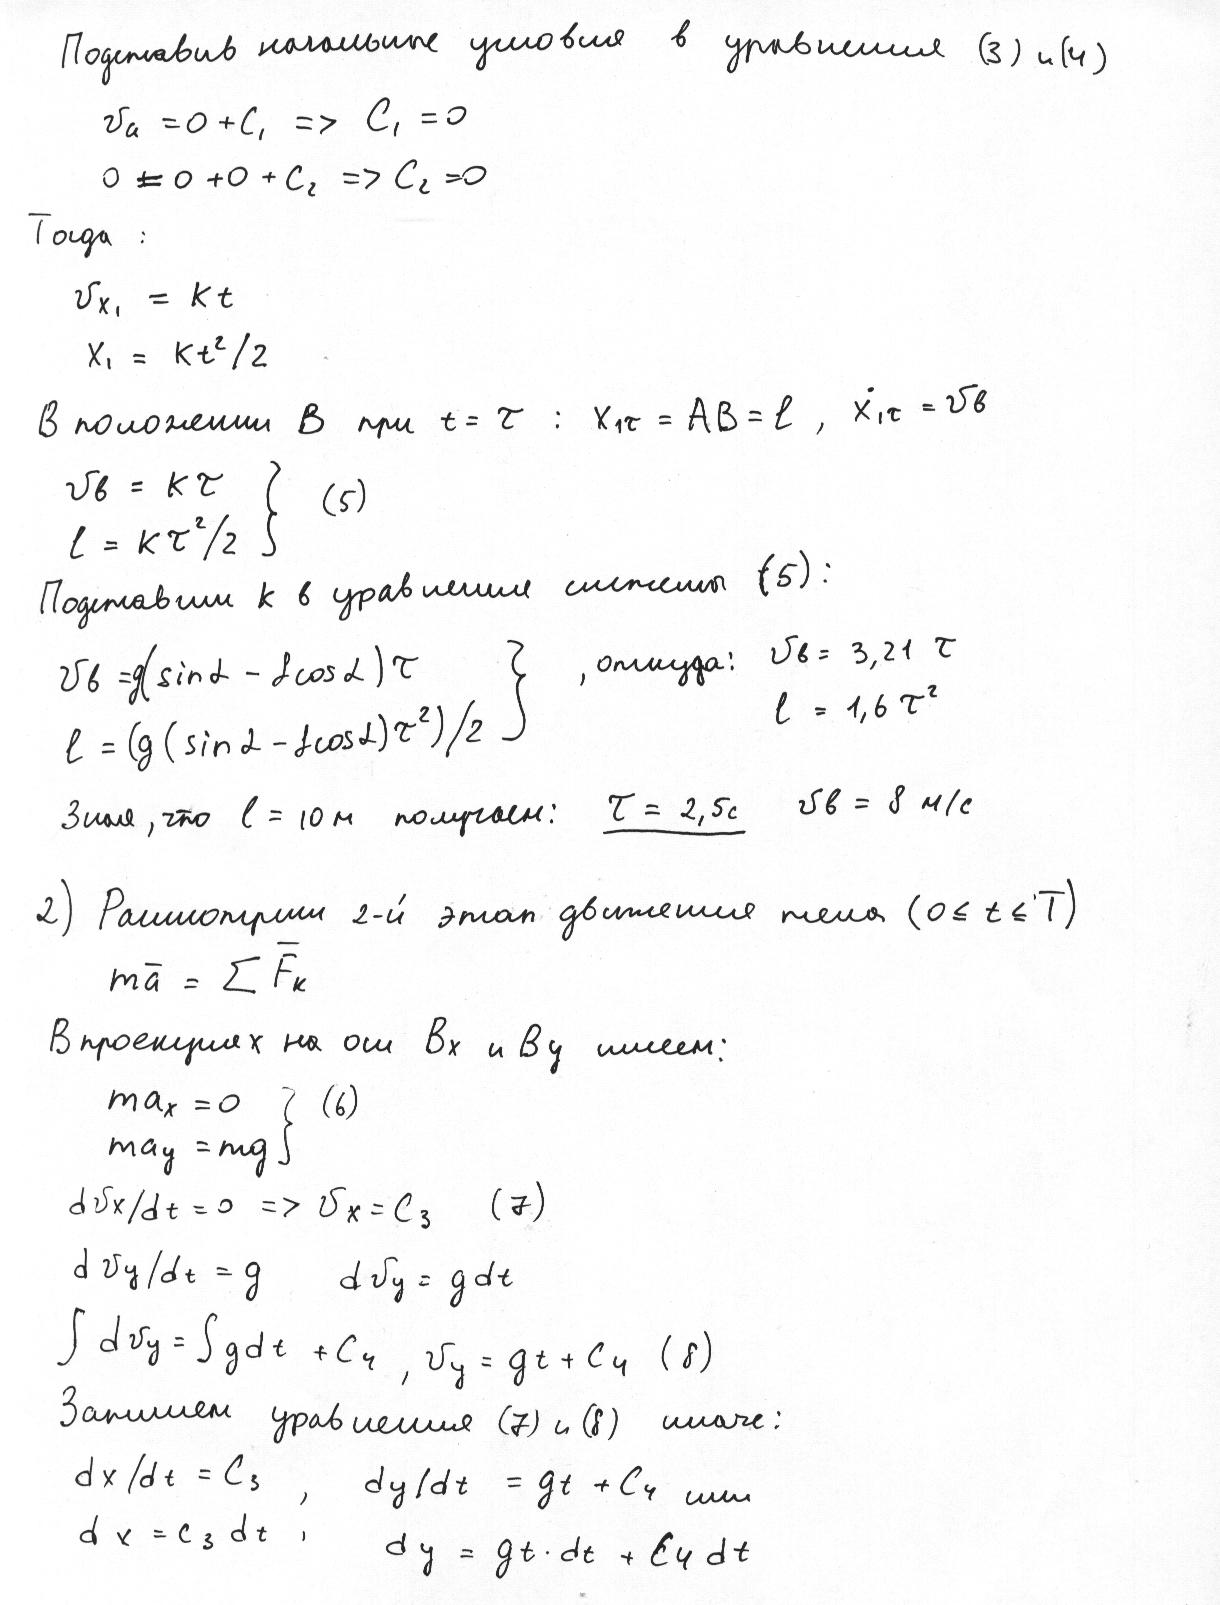 Подставив начальные условия в уравнения (3) и (4)
υa = 0 + C₁ => C₁ = 0
0 = 0 + 0 + C₂ => C₂ = 0
Тогда :
υx₁ = kt
x₁ = kt²/2
В положении B при t = τ : x₁τ = AB = l , ẋ₁τ = υв
υв = kτ
l = kτ²/2 } (5)
Подставим k в уравнения системы (5) :
υв = g(sinα - fcosα)τ
l = (g(sinα - fcosα)τ²)/2 } , откуда: υв = 3,21 τ
l = 1,6 τ²
Зная, что l = 10 м получаем: τ = 2,5с υв = 8 м/с
2) Рассмотрим 2-й этап движения тела (0 ≤ t ≤ T)
mā = ∑ F̄к
В проекциях на оси Bx и By имеем:
max = 0
may = mg } (6)
dυx/dt = 0 => υx = C₃ (7)
dυy/dt = g dυy = gdt
∫ dυy = ∫ gdt + C₄ , υy = gt + C₄ (8)
Запишем уравнения (7) и (8) иначе:
dx/dt = C₃ , dy/dt = gt + C₄ или
dx = C₃dt , dy = gt·dt + C₄dt